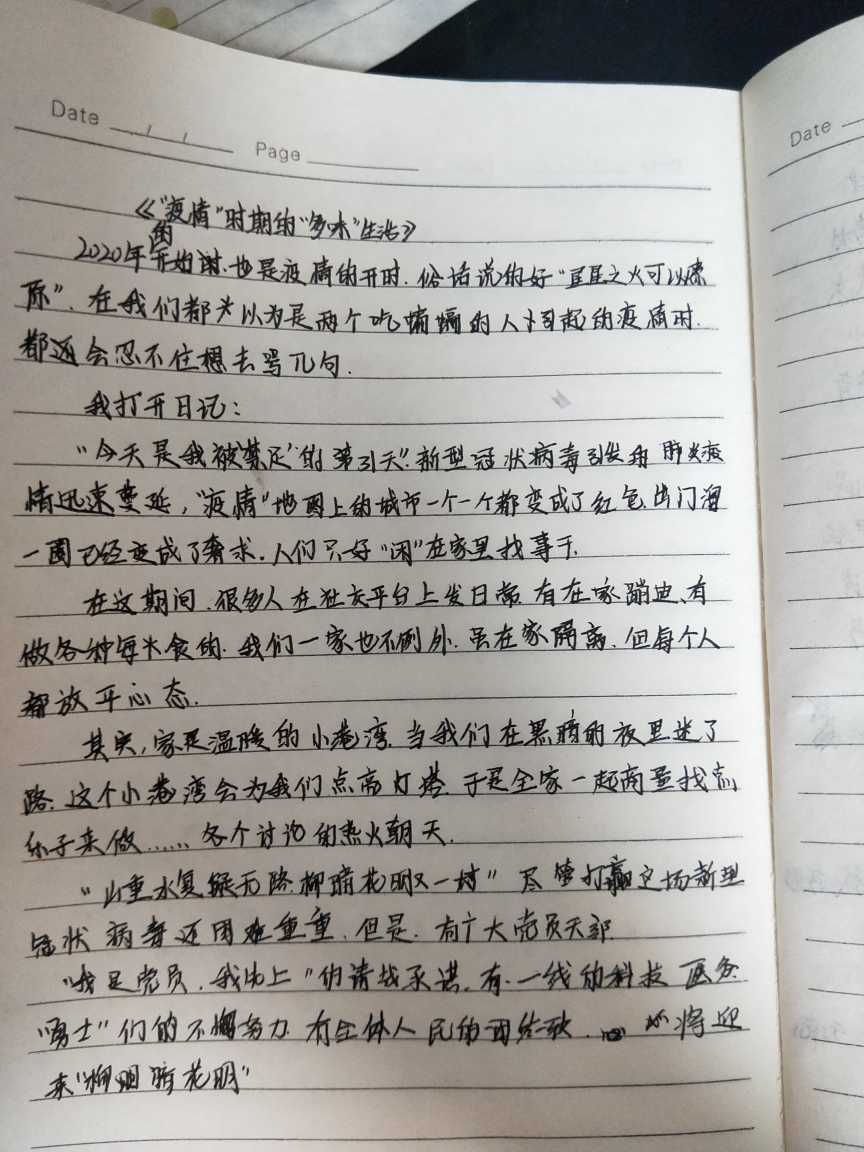 Date
Page
Date
《"疫情"时期的"多味"生活》
2020年的开始时.也是疫情的开时.俗话说的好"星星之火可以燎
原".在我们都以为是两个吃蝙蝠的人引起的疫情时.
都还会忍不住想去骂几句.
我打开日记:
"今天是我被"禁足"的第31天".新型冠状病毒引发的肺炎疫
情迅速蔓延,"疫情"地图上的城市一个一个都变成了红色.出门溜
一圈已经变成了奢求.人们只好"闲"在家里找事干.
在这期间.很多人在社交平台上发日常.有在家蹦迪、有
做各种每米食的.我们一家也不例外.虽在家隔离.但每个人
都放平心态.
其实,家是温暖的小港湾.当我们在黑暗的夜里迷了
路.这个小港湾会为我们点高灯塔.于是全家一起商量找点
乐子来做……各个讨论的热火朝天.
"山重水复疑无路.柳暗花明又一村"尽管打赢这场新型
冠状病毒还困难重重.但是.有广大党员干部
"我是党员.我先上"的请战承诺.有一线的科技医务
"勇士"们的不懈努力.有全体人民的团结 将迎
来"柳暗花明"